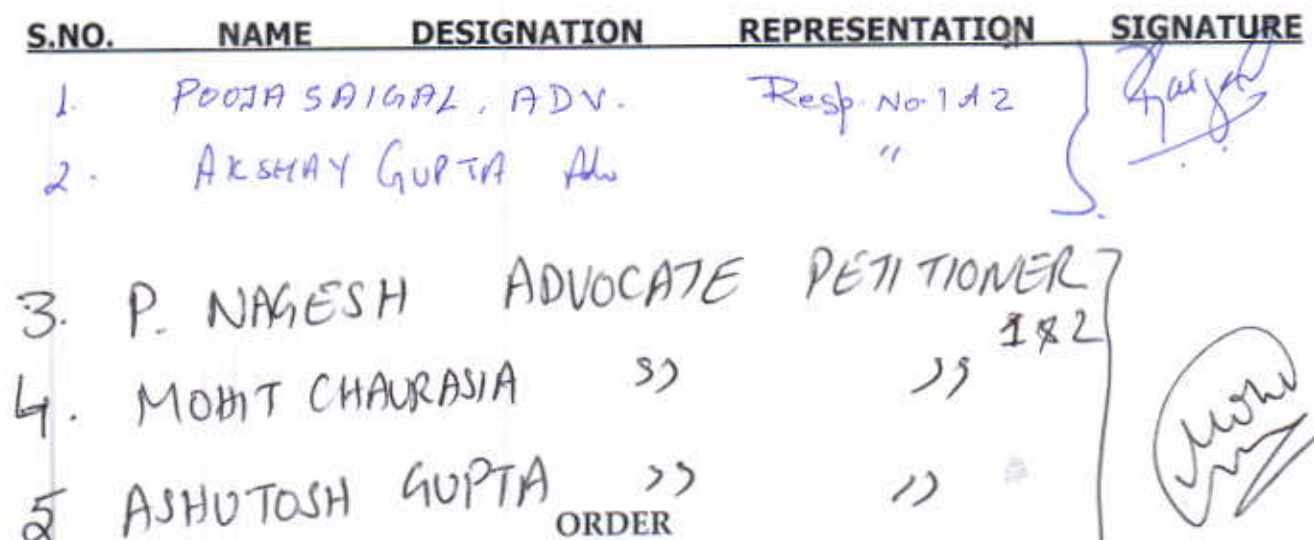 S.NO. NAME DESIGNATION REPRESENTATION SIGNATURE
1. POOJA SAIGAL, ADV. Resp. No. 1 & 2
2. AKSHAY GUPTA Adv "
3. P. NAGESH ADVOCATE PETITIONER
1 & 2
4. MOHIT CHAURASIA " "
5 ASHUTOSH GUPTA " "
ORDER